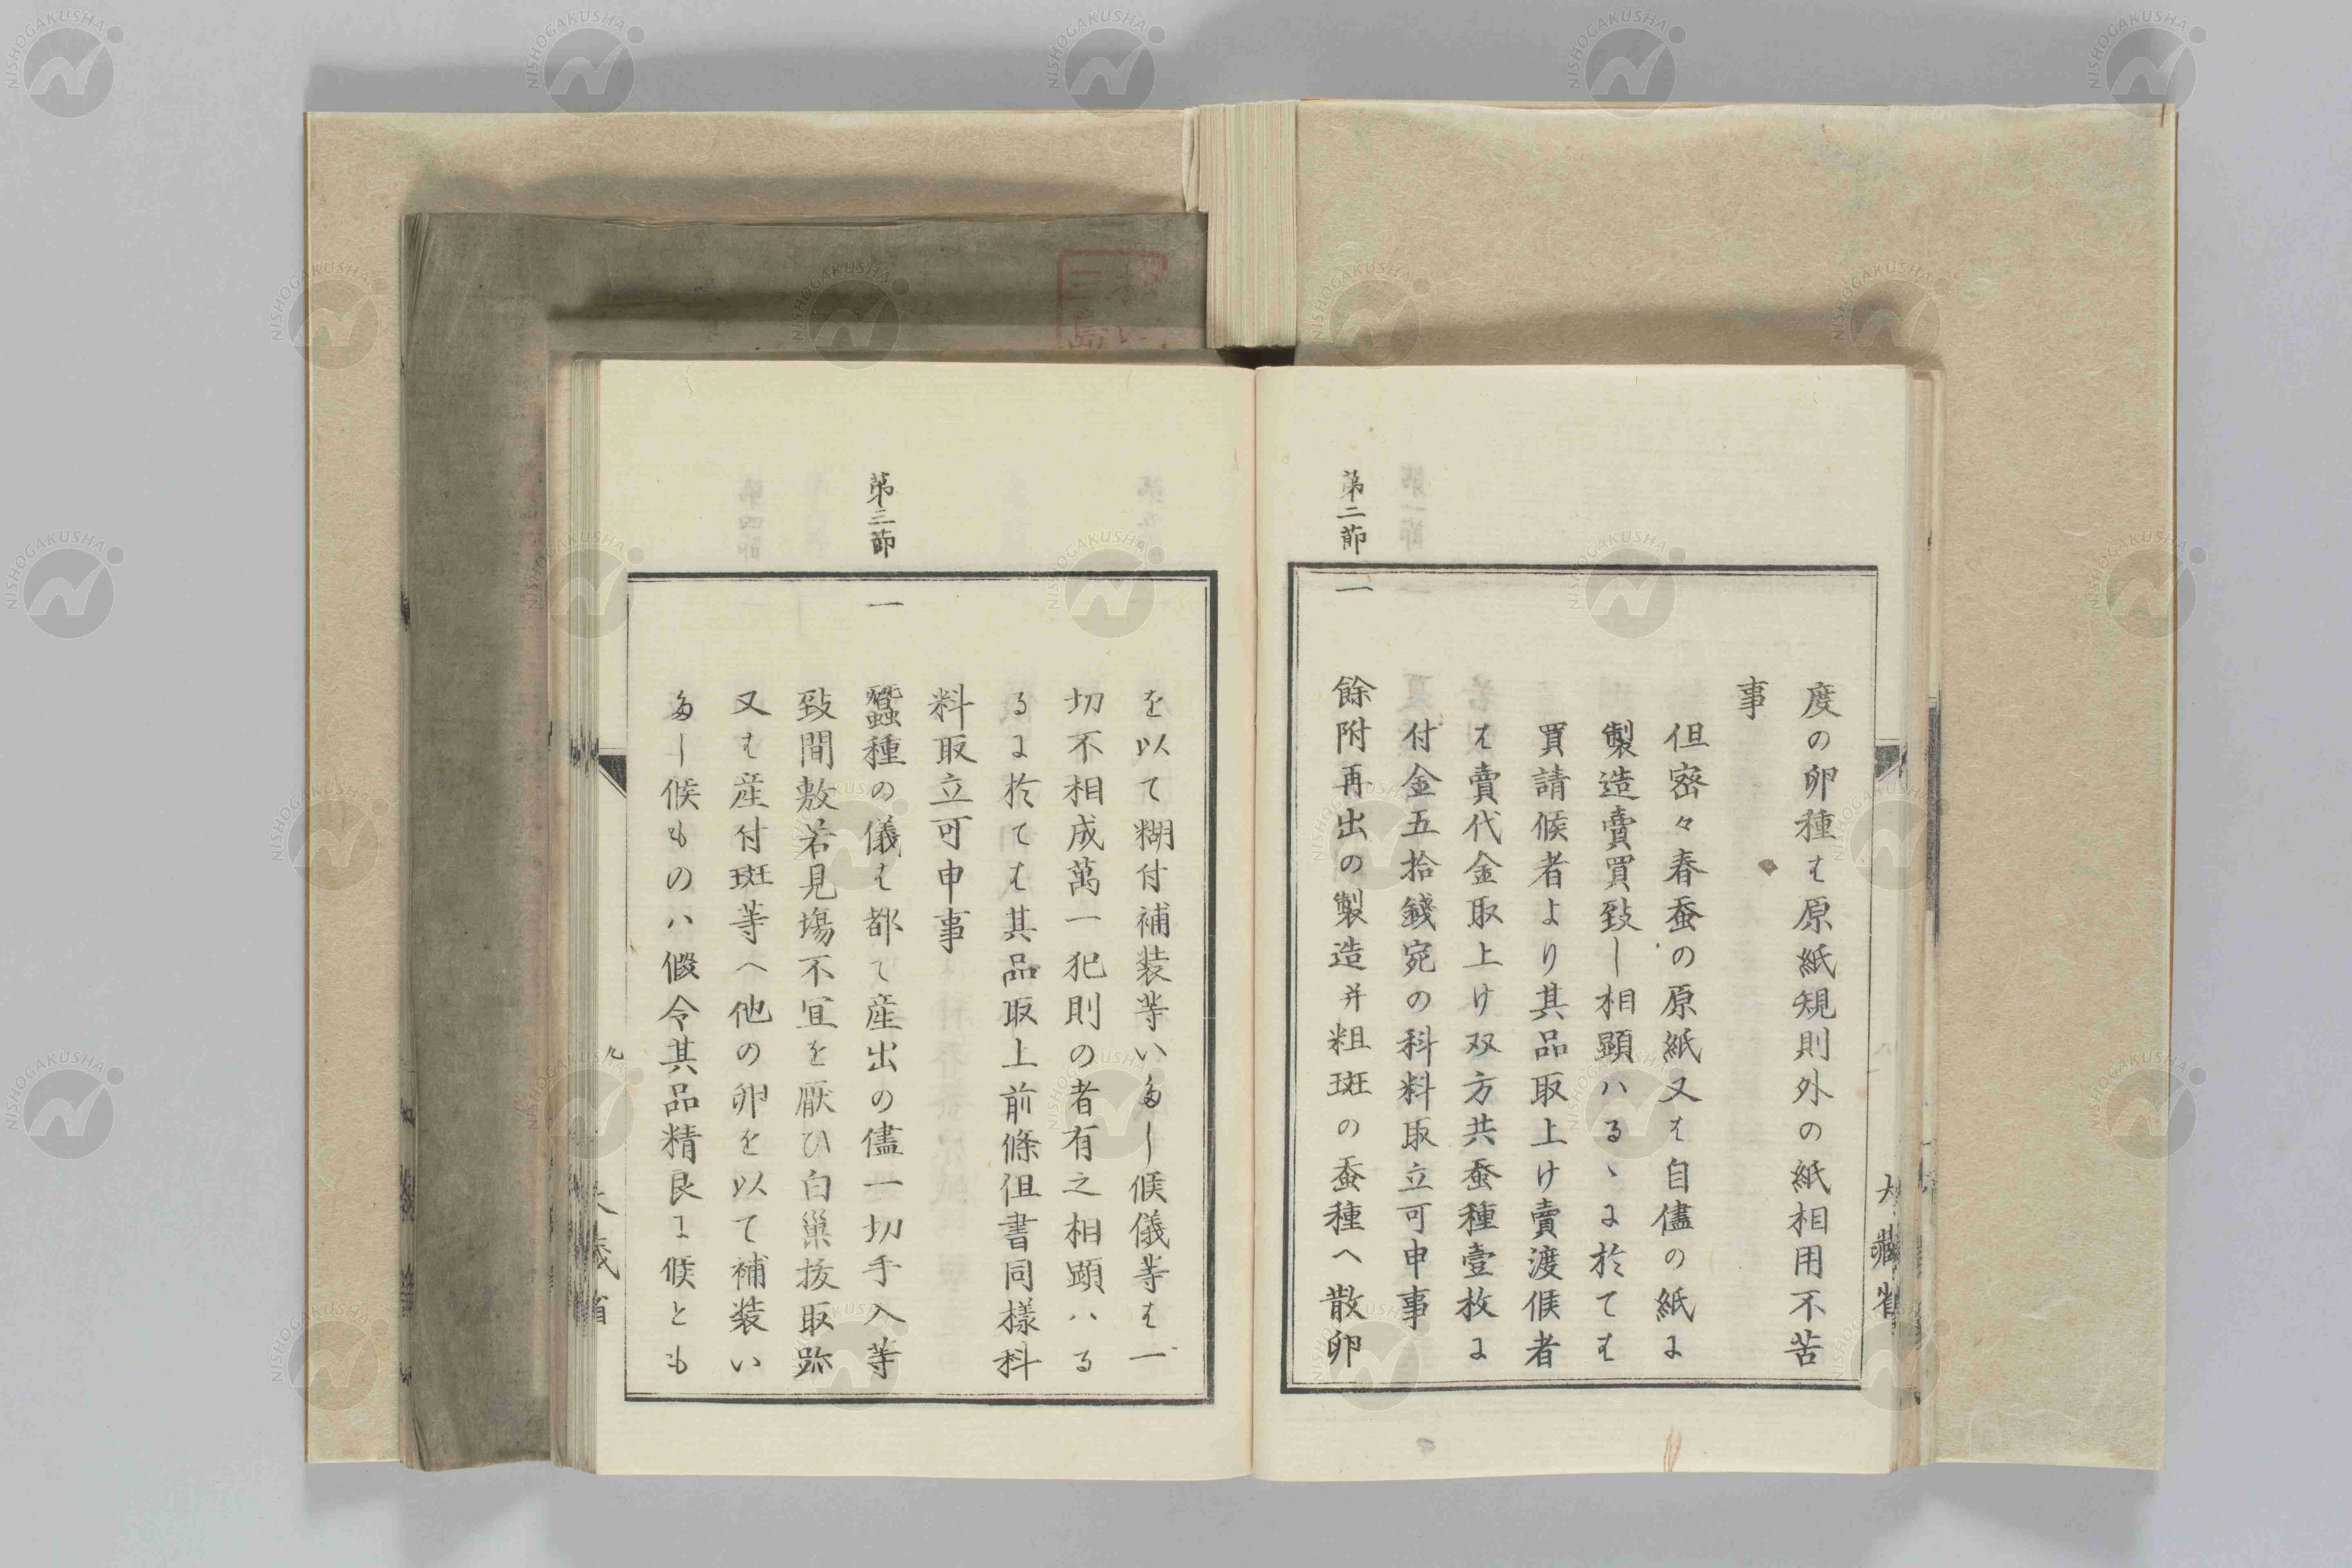 度の卵種も原紙規則外の紙相用不苦
事
但密々春蚕の原紙又も自儘の紙よ
製造賣買致し相顕ハるゝよ於ても
買請候者より其品取上け賣渡候者
も賣代金取上け双方共蚕種壹枚よ
付金五拾錢宛の科料取立可申事
第二節
一 餘附再出の製造并粗斑の蚕種へ散卵
大藏省
を以て糊付補装等いたし候儀等も一
切不相成萬一犯則の者有之相顕ハる
るよ於ても其品取上前條但書同様科
料取立可申事
第三節
一 蠶種の儀も都て産出の儘一切手入等
致間敷若見場不宜を厭ひ白巣抜取跡
又も産付斑等へ他の卵を以て補装い
たし候ものハ假令其品精良よ候とも
九
大藏省
NISHOGAKUSHA